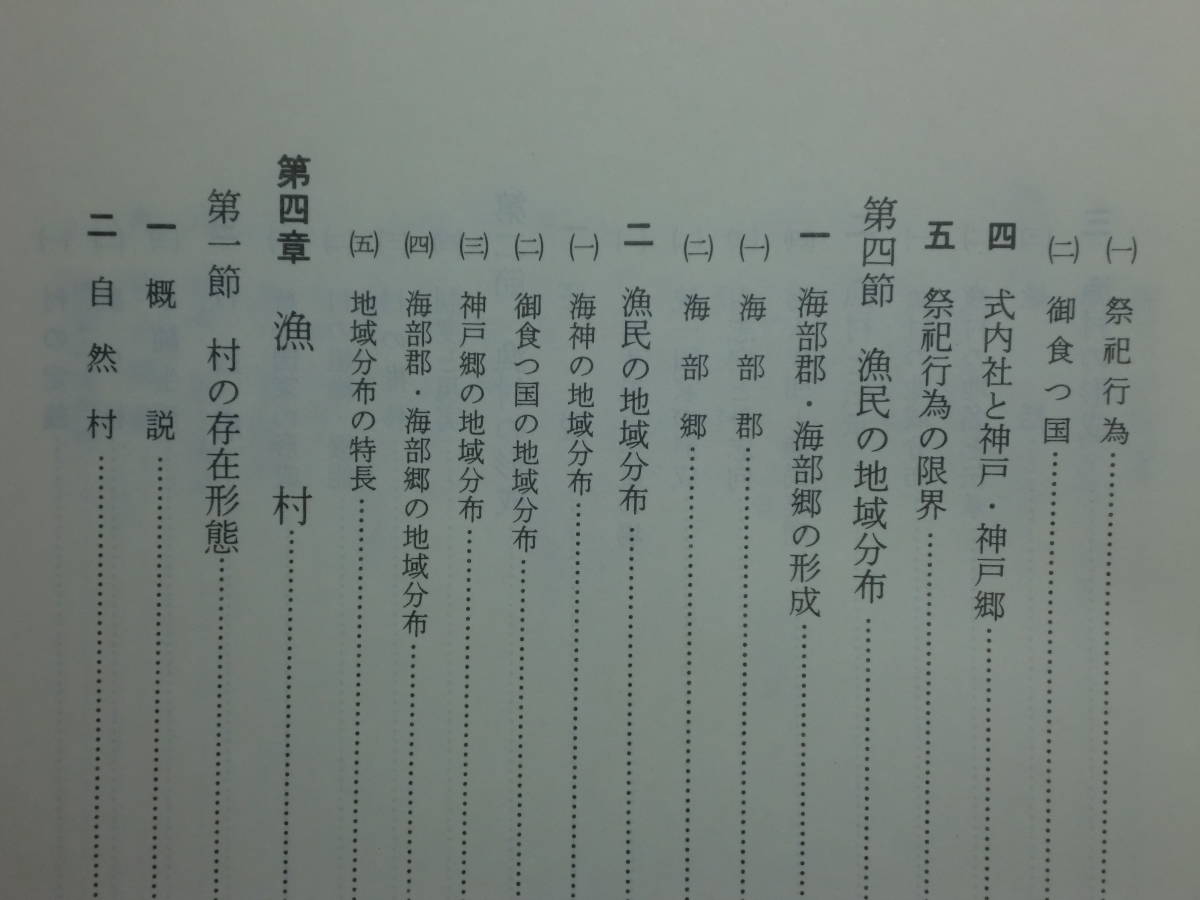 ㈠ 祭祀行為
㈡ 御食つ国
四 式内社と神戸・神戸郷
五 祭祀行為の限界
第四節 漁民の地域分布
一 海部郡・海部郷の形成
㈠ 海部郡
㈡ 海部郷
二 漁民の地域分布
㈠ 海神の地域分布
㈡ 御食つ国の地域分布
㈢ 神戸郷の地域分布
㈣ 海部郡・海部郷の地域分布
㈤ 地域分布の特長
第四章 漁村
第一節 村の存在形態
一 概説
二 自然村